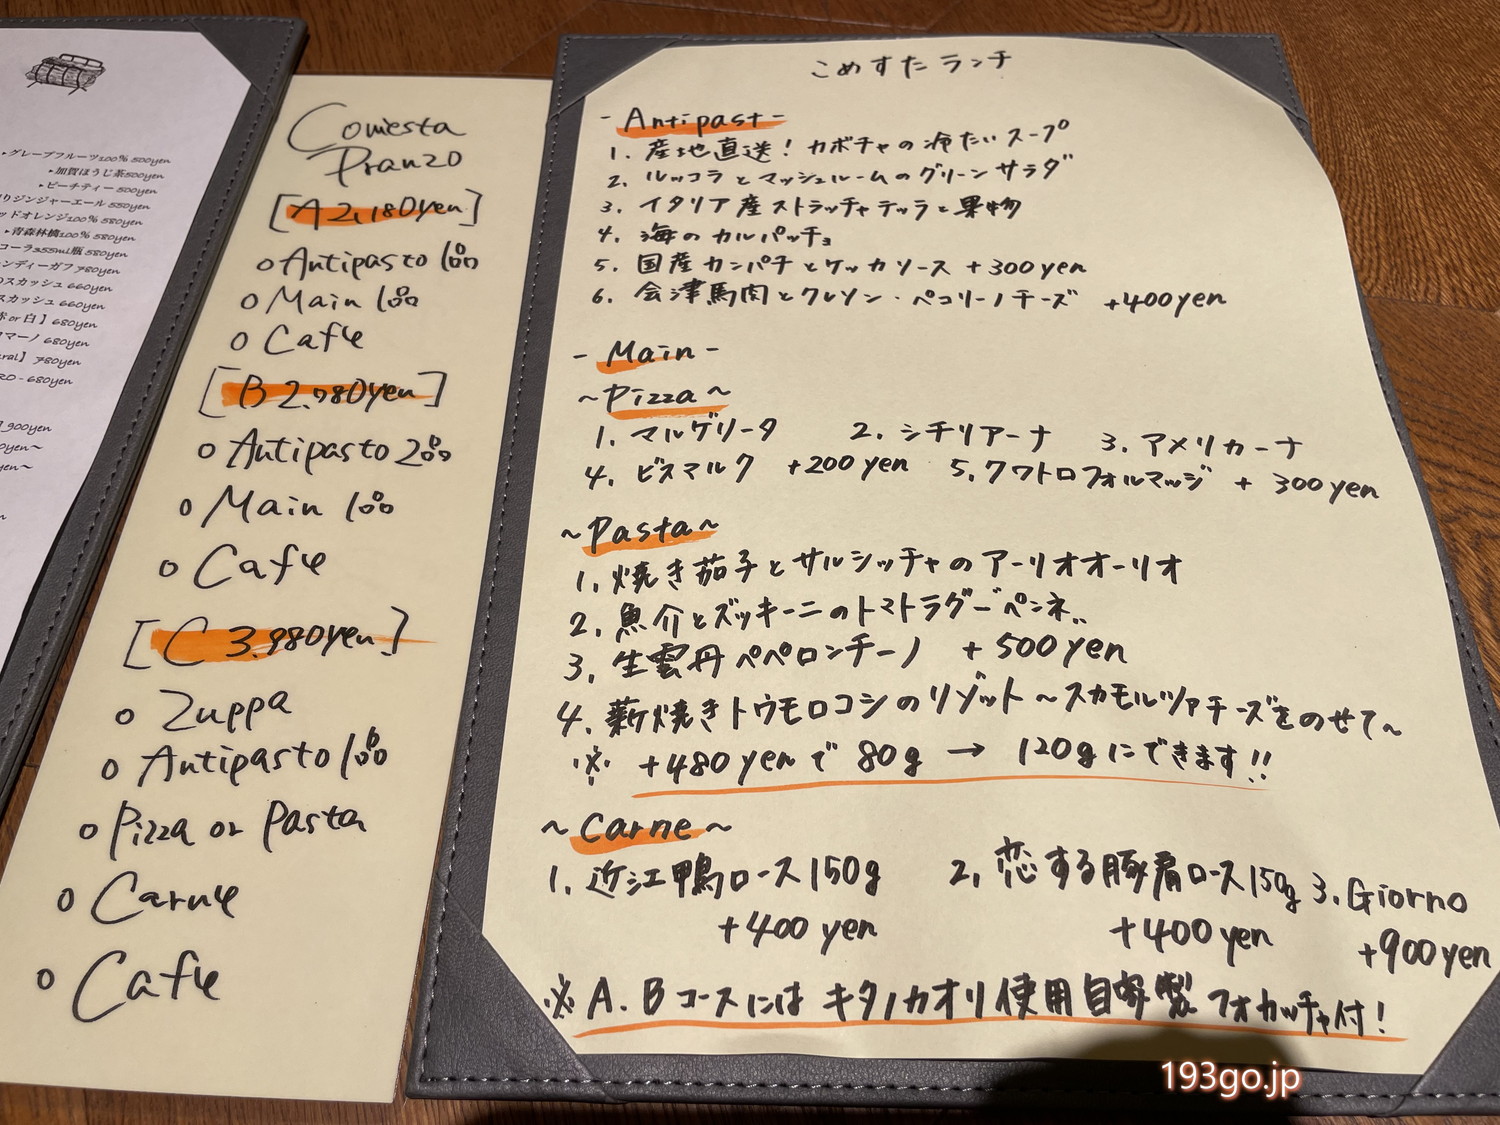 ▸グレープフルーツ100% 500yen
▸加賀ほうじ茶500yen
▸ピーチティー 500yen
りジンジャーエール 550yen
ッドオレンジ100% 580yen
▸青森林檎100% 580yen
コーラ355ml瓶 580yen
ンディーガフ 780yen
スカッシュ 660yen
スカッシュ 660yen
or 白】680yen
マーノ 680yen
ral】 780yen
RO - 680yen
900yen
yen～
Comesta
Pranzo
[A 2,180yen]
○ Antipasto 1品
○ Main 1品
○ Cafe
[B 2.780yen]
○ Antipasto 2品
○ Main 1品
○ Cafe
[C 3.980yen]
○ Zuppa
○ Antipasto 1品
○ Pizza or Pasta
○ Carne
○ Cafe
こめすたランチ
- Antipast -
1. 産地直送！カボチャの冷たいスープ
2. ルッコラとマッシュルームのグリーンサラダ
3. イタリア産ストラッチャテッラと果物
4. 海のカルパッチョ
5. 国産カンパチとケッカソース +300yen
6. 会津馬肉とクレソン・ペコリーノチーズ +400yen
- Main -
~Pizza~
1. マルゲリータ 2. シチリアーナ 3. アメリカーナ
4. ビスマルク +200yen 5. クワトロフォルマッジ + 300yen
~Pasta~
1. 焼き茄子とサルシッチャのアーリオオーリオ
2. 魚介とズッキーニのトマトラグー ペンネ
3. 生雲丹ペペロンチーノ +500yen
4. 薪焼きトウモロコシのリゾット～スカモルツァチーズをのせて～
※ +480yenで 80g → 120gにできます!!
~Carne~
1. 近江鴨ロース150g 2. 恋する豚肩ロース150g 3. Giorno
+400yen +400yen +900yen
※ A.Bコースには キタノカオリ使用自家製 フォカッチャ付！
193go.jp